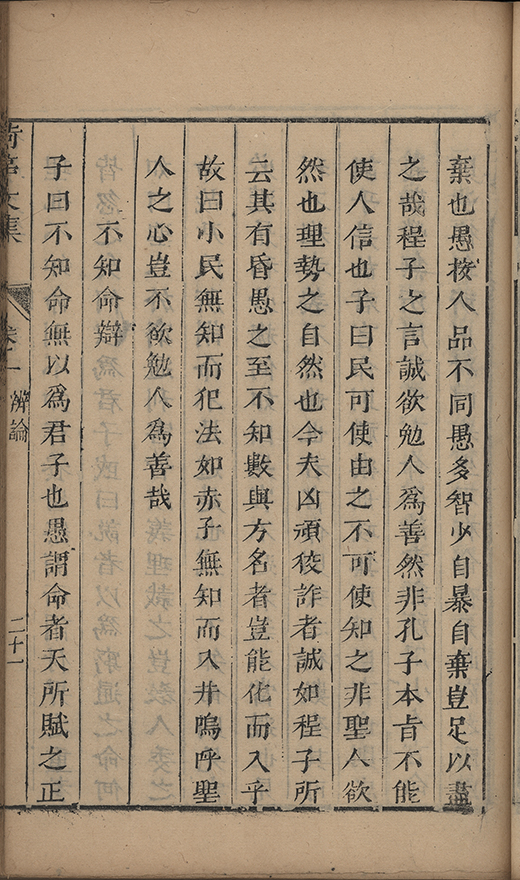 棄也愚按人品不同愚多智少自暴自棄豈足以盡
之哉程子之言誠欲勉人爲善然非孔子本旨不能
使人信也子曰民可使由之不可使知之非聖人欲
然也理勢之自然也今夫凶頑狡詐者誠如程子所
云其有昏愚之至不知數與方名者豈能化而入乎
故曰小民無知而犯法如赤子無知而入井嗚呼聖
人之心豈不欲勉人爲善哉
不知命辯
子曰不知命無以爲君子也愚謂命者天所賦之正
文集
辨論
二十一